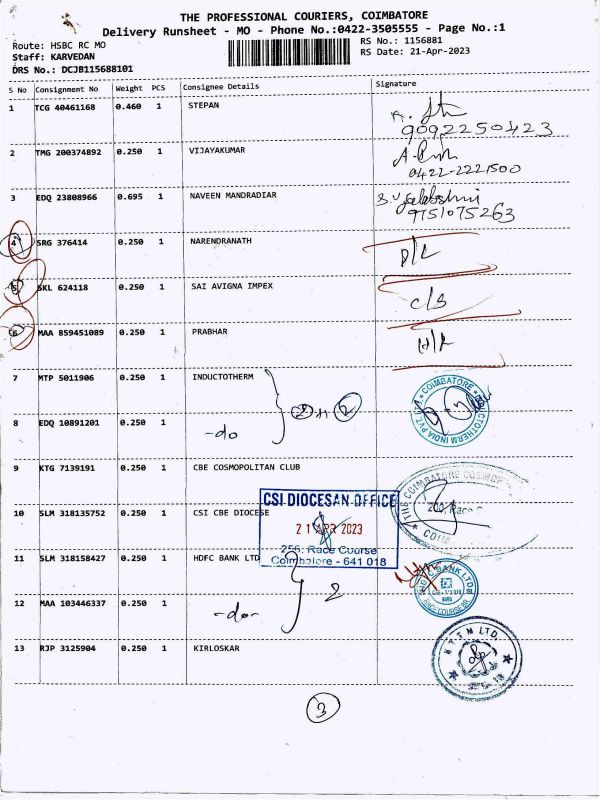 THE PROFESSIONAL COURIERS, COIMBATORE
Delivery Runsheet - MO - Phone No.:0422-3505555 - Page No.:1
Route: HSBC RC MO
RS No.: 1156881
Staff: KARVEDAN
RS Date: 21-Apr-2023
DRS No.: DCJB115688101
S No Consignment No Weight PCS Consignee Details Signature
1 TCG 40461168 0.460 1 STEPAN
9092250423
2 TMG 200374892 0.250 1 VIJAYAKUMAR
0422-2221500
3 EDQ 23808966 0.695 1 NAVEEN MANDRADIAR
9751075263
4 SRG 376414 0.250 1 NARENDRANATH D/L
5 SKL 624118 0.250 1 SAI AVIGNA IMPEX C/S
6 MAA 859451089 0.250 1 PRABHAR
7 MTP 5011906 0.250 1 INDUCTOTHERM
COIMBATORE
INDUCTOTHERM INDIA PVT. LTD
8 EDQ 10891201 0.250 1 -do
9 KTG 7139191 0.250 1 CBE COSMOPOLITAN CLUB
THE COIMBATORE COSMOPO
200, Race C
10 SLM 318135752 0.250 1 CSI CBE DIOCESE
CSI DIOCESAN OFFICE
21 APR 2023
256, Race Course
Coimbatore - 641 018
11 SLM 318158427 0.250 1 HDFC BANK LTD 2
BANK LTD
RACE COURSE BR
12 MAA 103446337 0.250 1 -do-
13 RJP 3125904 0.250 1 KIRLOSKAR
LTD.
3